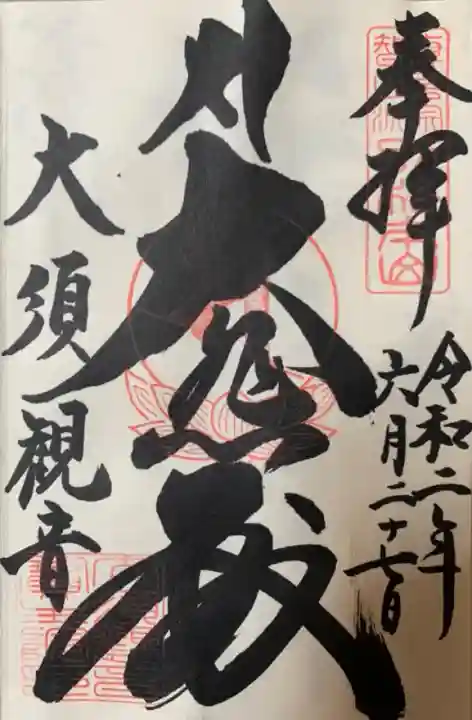 奉拝
令和二年
六月二十七日
大悲殿
大須観音